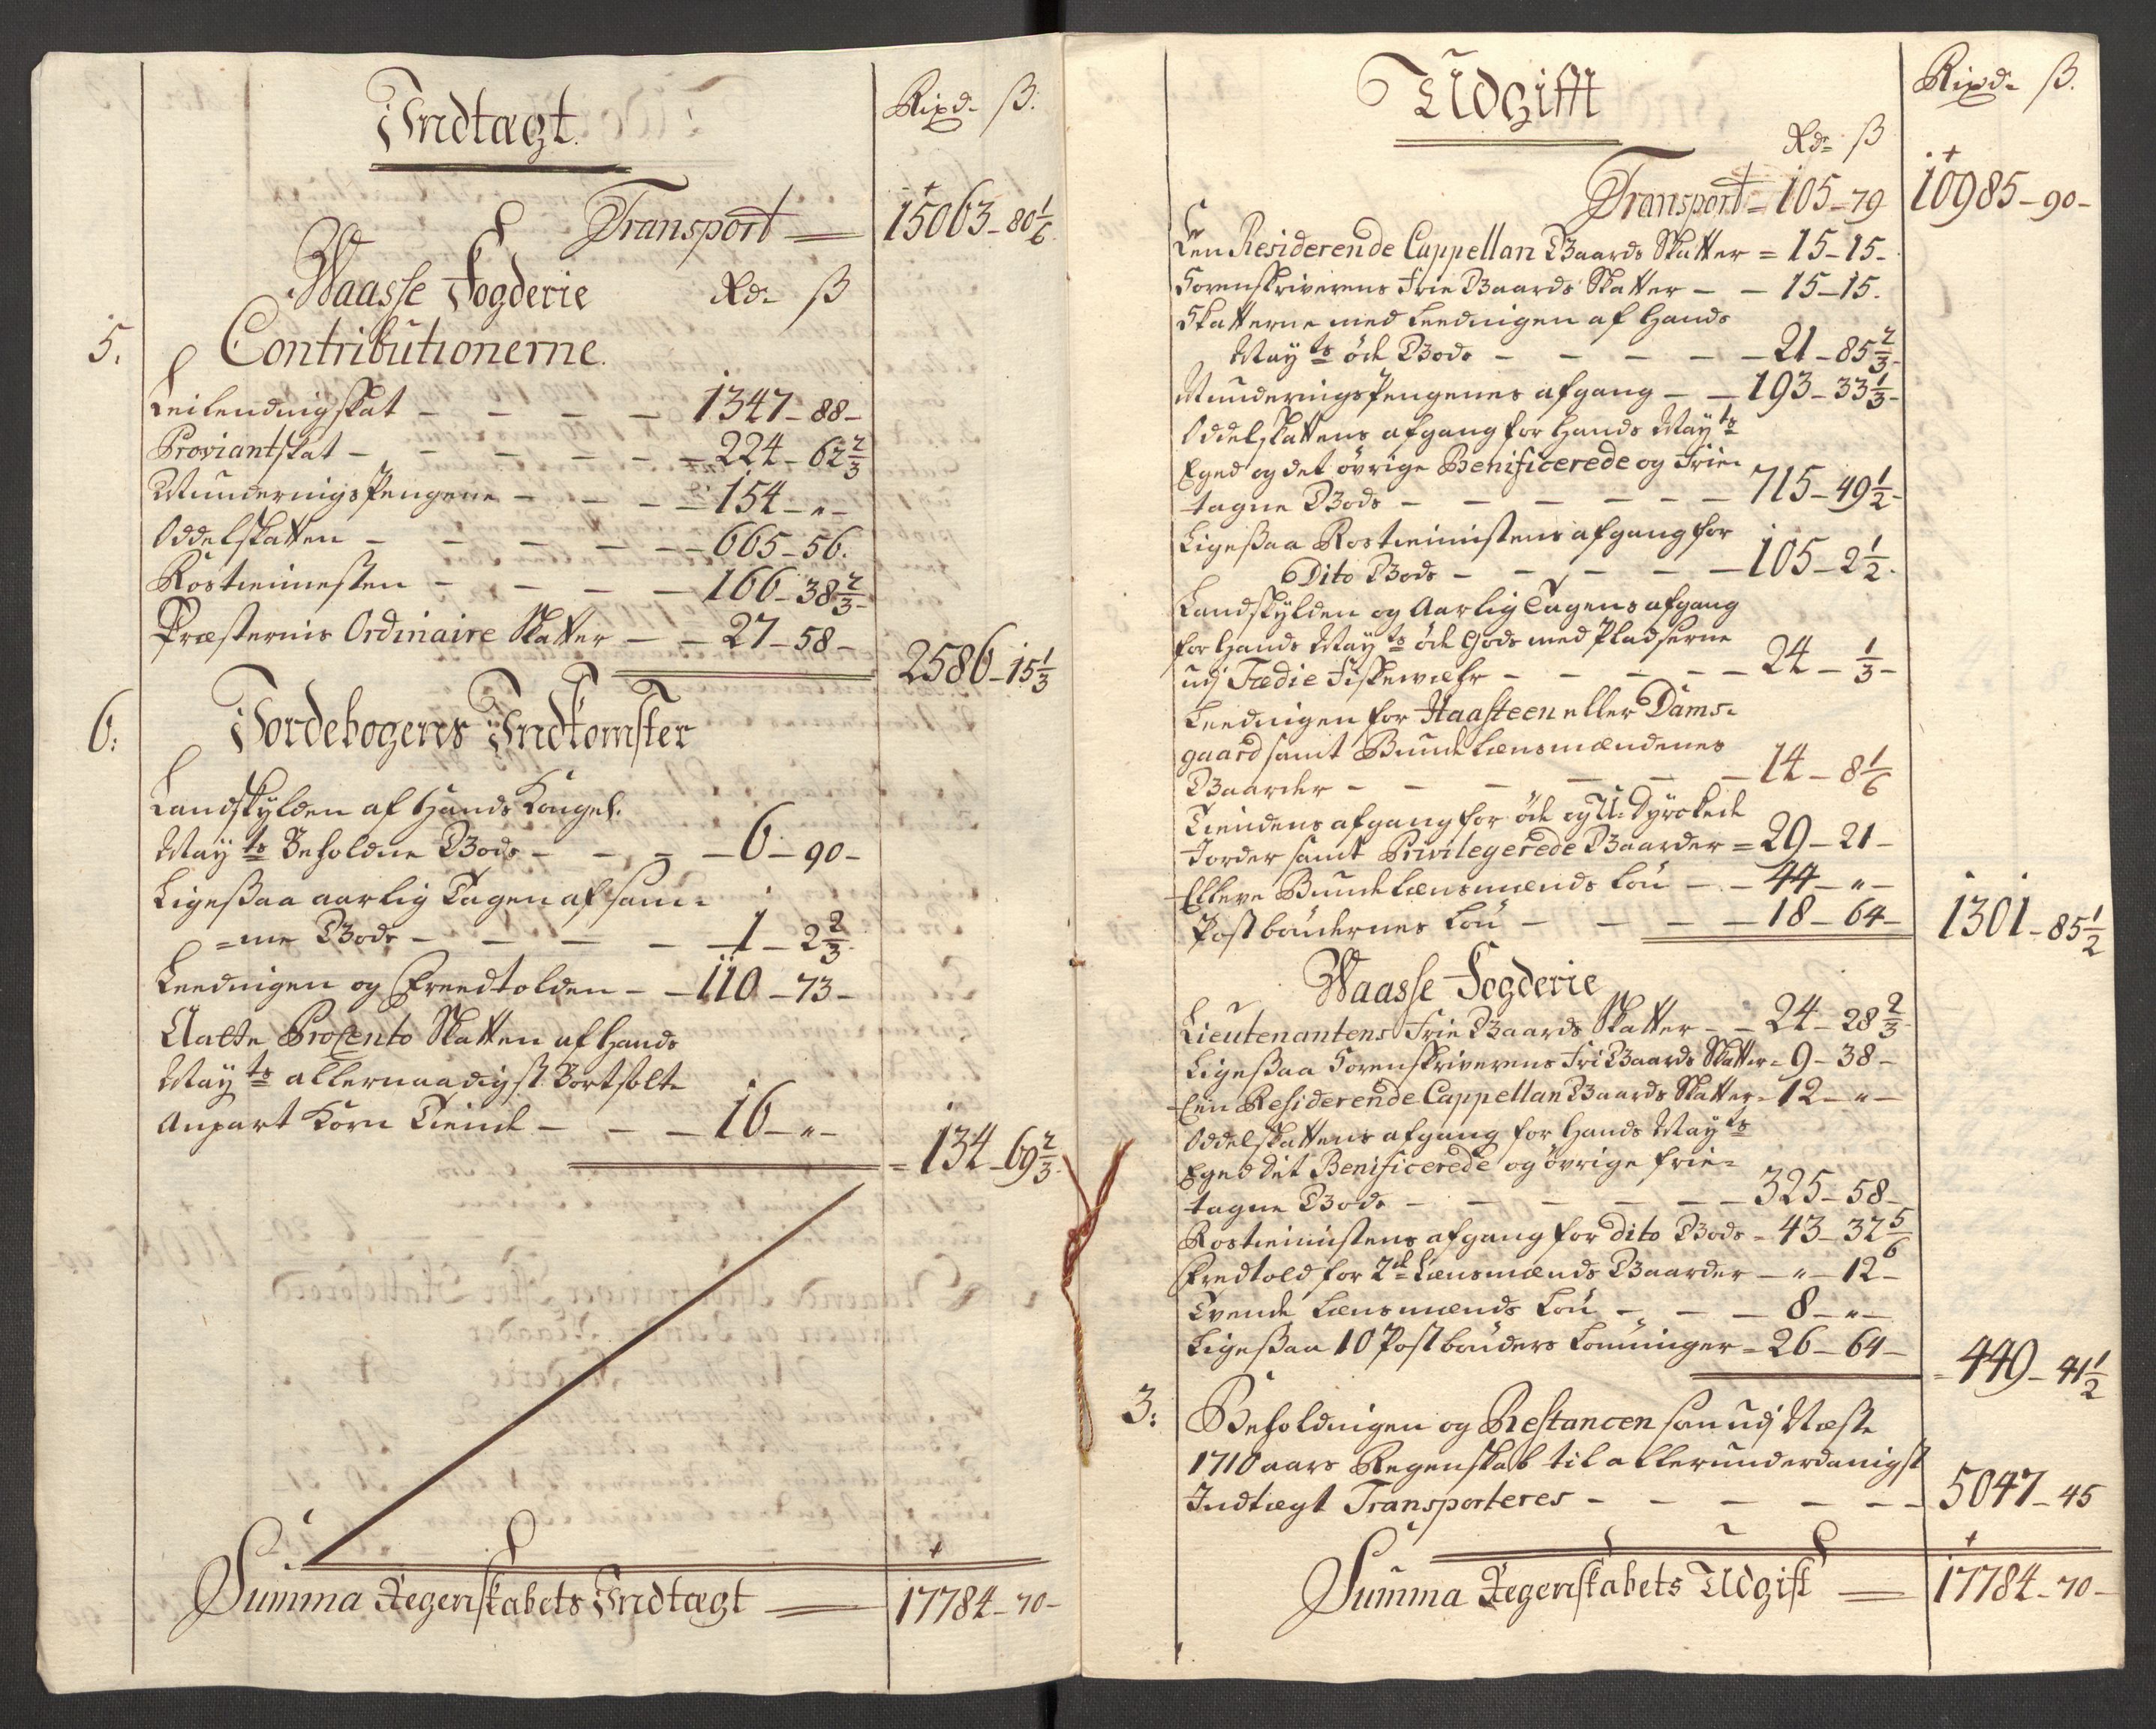 Indtægt.
Rixd. ß.
Transport 15063 - 80 1/6
Waasse Fogderie Rd. ß
5. Contributionerne.
Leilendingskat - - - - 1347 - 88 -
Proviantskat - - - - - 224 - 62 2/3
Munderingspengene - - - 154 - " -
Oddelskatten - - - - - 665 - 56.
Rostienesten - - - - 166 - 38 2/3 -
Præsternis Ordinaire Skatter - - 27 - 58 -
2586 - 15 1/3
6: Jordebogens Indkomster
Landskylden af Hands Kongel.
Mayts Beholdne Gods - - - - 6 - 90 -
Ligesaa aarlig Tagen af sam-
=me Gods - - - - - 1 - 2 2/3
Leedingen og Freedtolden - - 110 - 73 -
Aatte Procento Skatten af Hands
Mayts allernaadigst Bortsolte
Anpart Korn Tiende - - - 16 - " -
= 134 - 69 2/3
Summa Regenskabets Indtægt 17784 - 70 -
Udgifft
Rixd. ß.
Rd. ß
Transport = 105 - 79 10985 - 90 -
Een Residerende Cappellan Gaards Skatter = 15 - 15 -
Sorenskriverens Frie Gaards Skatter - - 15 - 15.
Skatterne med Leedingen af Hands
Mayts öde Gods - - - - - 21 - 85 2/3 -
Munderingspengenes afgang - - 193 - 33 1/3 -
Oddelskattens afgang for Hands Mayts
Eged og det övrige Benificerede og Frie-
tagne Gods - - - - - - 715 - 49 1/2 -
Ligesaa Rostienistens afgang for
Dito Gods - - - - - 105 - 2 1/2 -
Landskylden og Aarlig Tagens afgang
for Hands Mayts öde Gods med Pladserne
udj Fædie Fiskewæhr - - - - - 24 - 1/3 -
Leedingen for Haasteen eller Dams-
gaard samt Bundelænsmændenes
Gaarder - - - - - 14 - 8 1/6
Tiendens afgang for öde og U-dyrckede
Jorder samt Privilegerede Gaarder = 29 - 21 -
Elleve Bundelænsmænds Lön - - 44 - " -
Postböndernes Lön - - - - 18 - 64 -
1301 - 85 1/2
Waasse Fogderie
Lieutenantens Frie Gaards Skatter - - 24 - 28 2/3 -
Ligesaa Sorenskriverens Fri Gaards Skatter = 9 - 38 -
Een Residerende Cappellan Gaards Skatter - 12 - " -
Oddelskattens afgang for Hands Mayts
Eged Det Benificerede og övrige frie-
tagne Gods - - - - - - 325 - 58 -
Rostienistens afgang for dito Gods - 43 - 32 5/6
Fredtold for 2de Lænsmænds Gaarder - " - 12 -
Tvende Lænsmænds Lön - - - 8 - " -
Ligesaa 10 Postbönders Lönninger = 26 - 64 -
= 449 - 41 1/2
3: Beholdningen og Restancen som udj Næste
1710 aars Regenskab til allerunderdanigst
Indtægt Transporteres - - - - - - 5047 - 45
Summa Regenskabets Udgift 17784 - 70 -